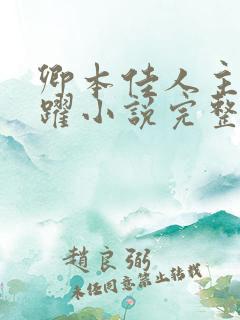 卿本佳人主
躍小說完整
趙良弼
未任同意禁止转载